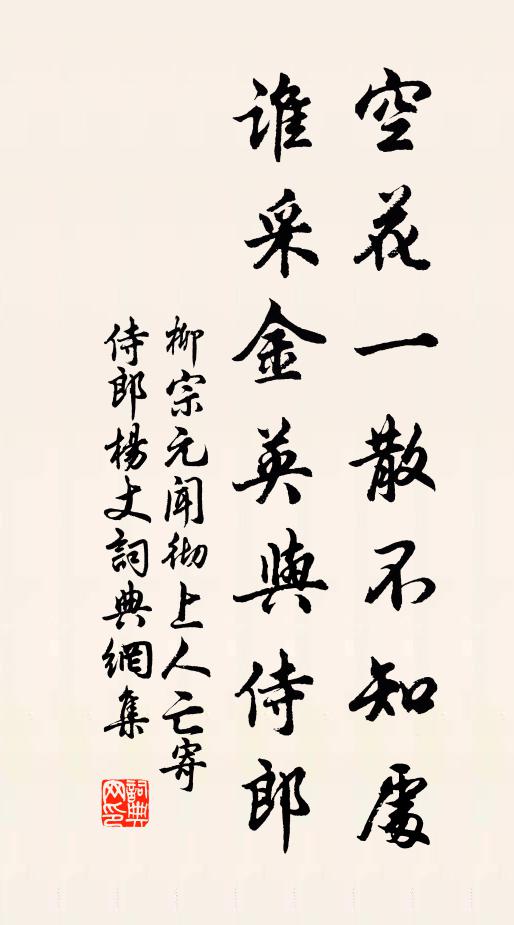 空花一散不知處
谁采金英與侍郎
柳宗元聞彻上人亡寄
侍郎楊丈詞典網集
詞典
网印